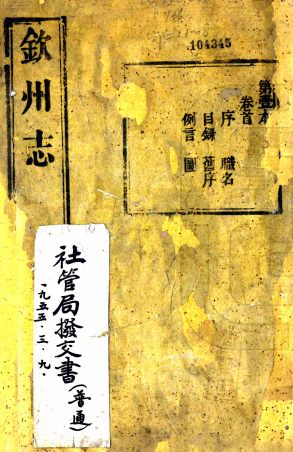 104345
欽州志
第壹本
卷首
序 職名
目録 舊序
例言 圖
社管局撥交書(普通)
一九五五.三.九.